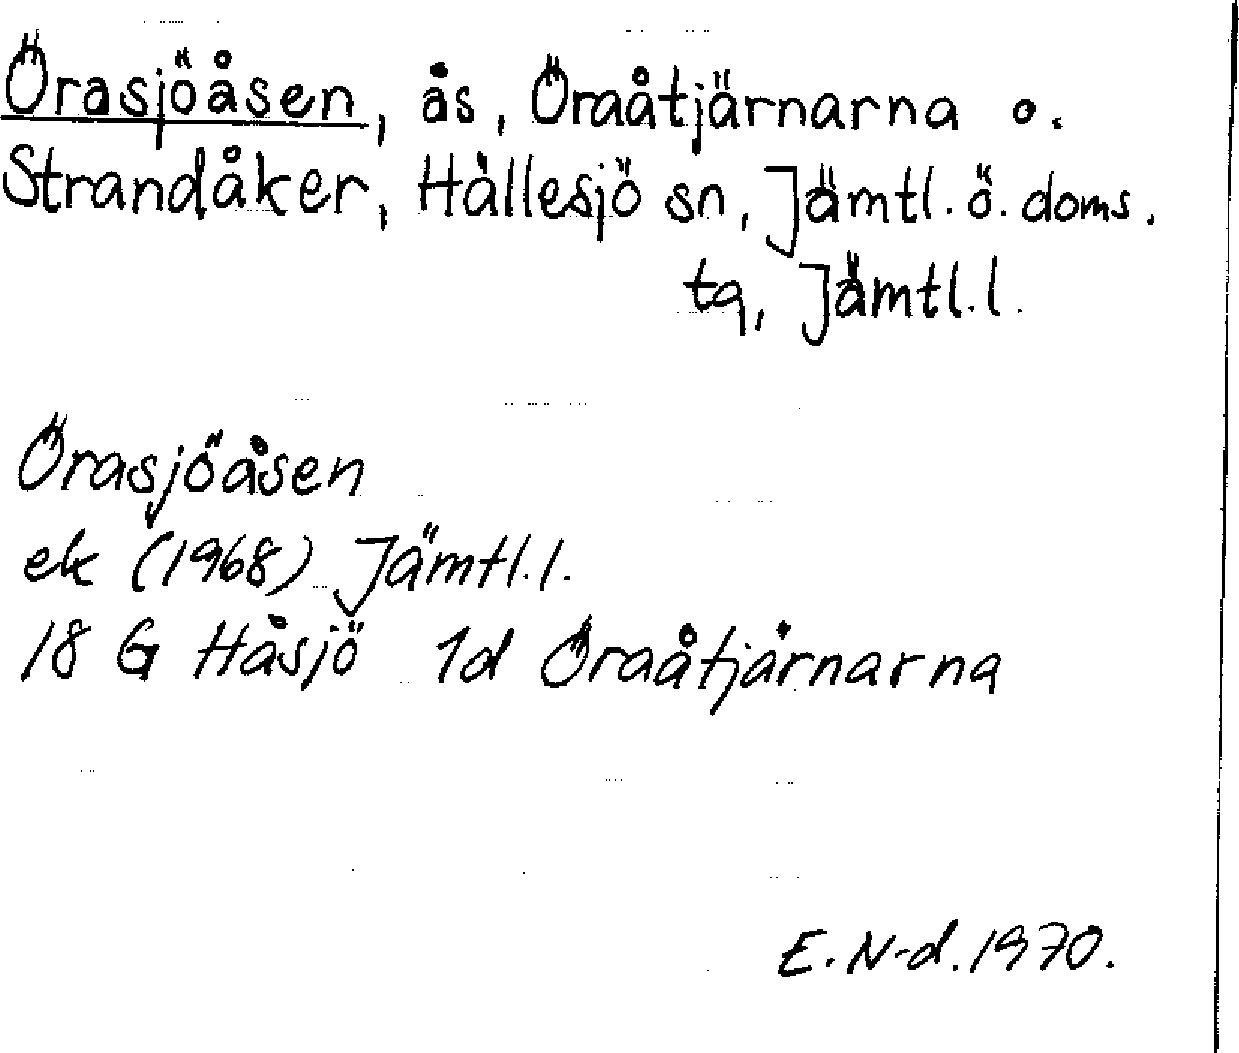 Örasjöåsen, ås, Öraåtjärnarna o.
Strandåker, Hällesjö sn, Jämtl. ö. doms.
tg, Jämtl. l.
Örasjöåsen
ek (1968) Jämtl. l.
18 G Håsjö 1d Öraåtjärnarna
E. N-d. 1970.